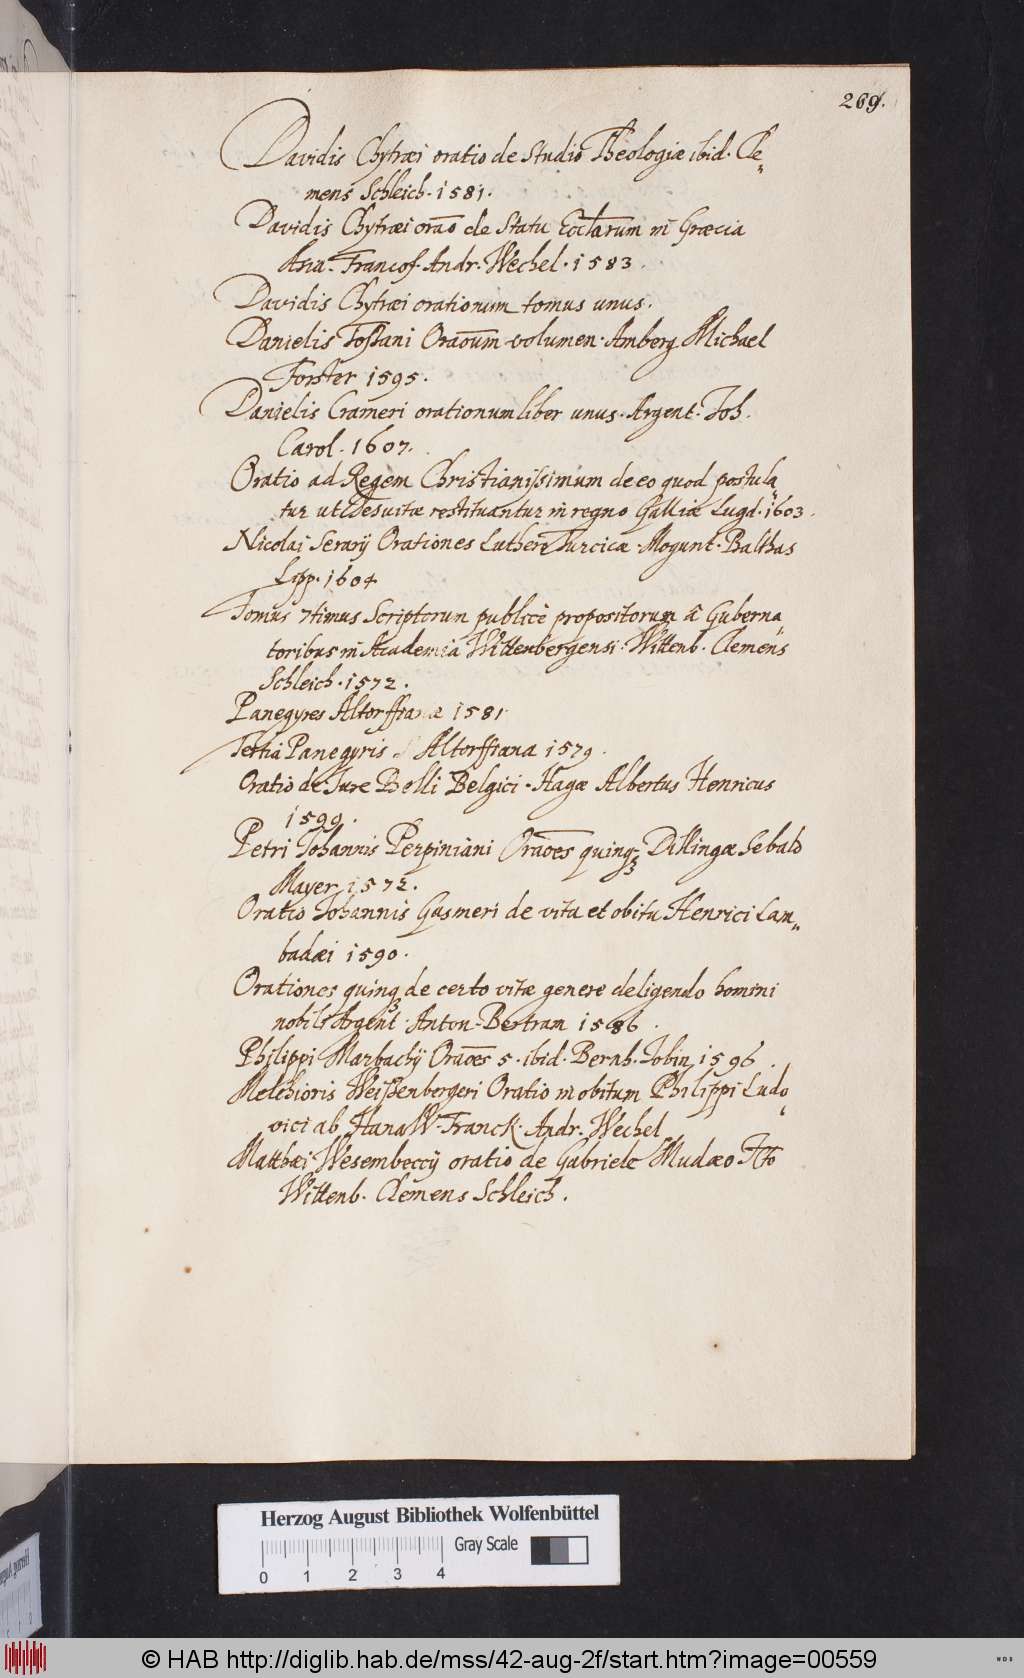 269.
Davidis Chytræi oratio de studio Theologiæ ibid. Cle„
mens Schleich. 1581.
Davidis Chytræi orão de Statu Ecclarum in Græcia
Asia. Francof. Andr. Wechel. 1583.
Davidis Chytræi orationum tomus unus.
Danielis Tossani Oraõum volumen. Amberg Michael
Forster 1595.
Danielis Crameri orationum liber unus. Argent. Joh.
Carol. 1607.
Oratio ad Regem Christianissimum de eo quod postula„
tur ut Jesuitæ restituantur in regno Galliæ Lugd. 1603.
Nicolai Serarij Orationes Lutheri Turcicæ. Mogunt. Balthas
Lipp. 1604
Tomus 7timus Scriptorun publicè propositorum â Guberna„
toribus in Academia Wittenbergensi. Wittenb. Clemens
Schleich. 1572.
Panegyres Altorffianæ 1581
Tertia Panegyris Altorffiana 1579.
Oratio de Jure Belli Belgici. Hagæ Albertus Henricus
1599.
Petri Johannis Perpiniani Oraões quinq3 Dillingæ Sebald
Mayer 1572.
Oratio Johannis Gasmeri de vita et obitu Henrici Lam„
badæi 1590.
Orationes quinq3 de certo vitæ genere deligendo homini
nobili Argent. Anton. Bertram 1586.
Philippi Marbachij Oraões 5. ibid. Bernh. Jobin 1596.
Melchioris Weissenbergeri Oratio in obitum Philippi Ludo„
vici ab HanaW. Franck. Andr. Wechel
Matthæi Wesembeccij oratio de Gabriele Mudæo ICto
Wittenb. Clemens Schleich.
Herzog August Bibliothek Wolfenbüttel
Gray Scale
0 1 2 3 4
© HAB http://diglib.hab.de/mss/42-aug-2f/start.htm?image=00559